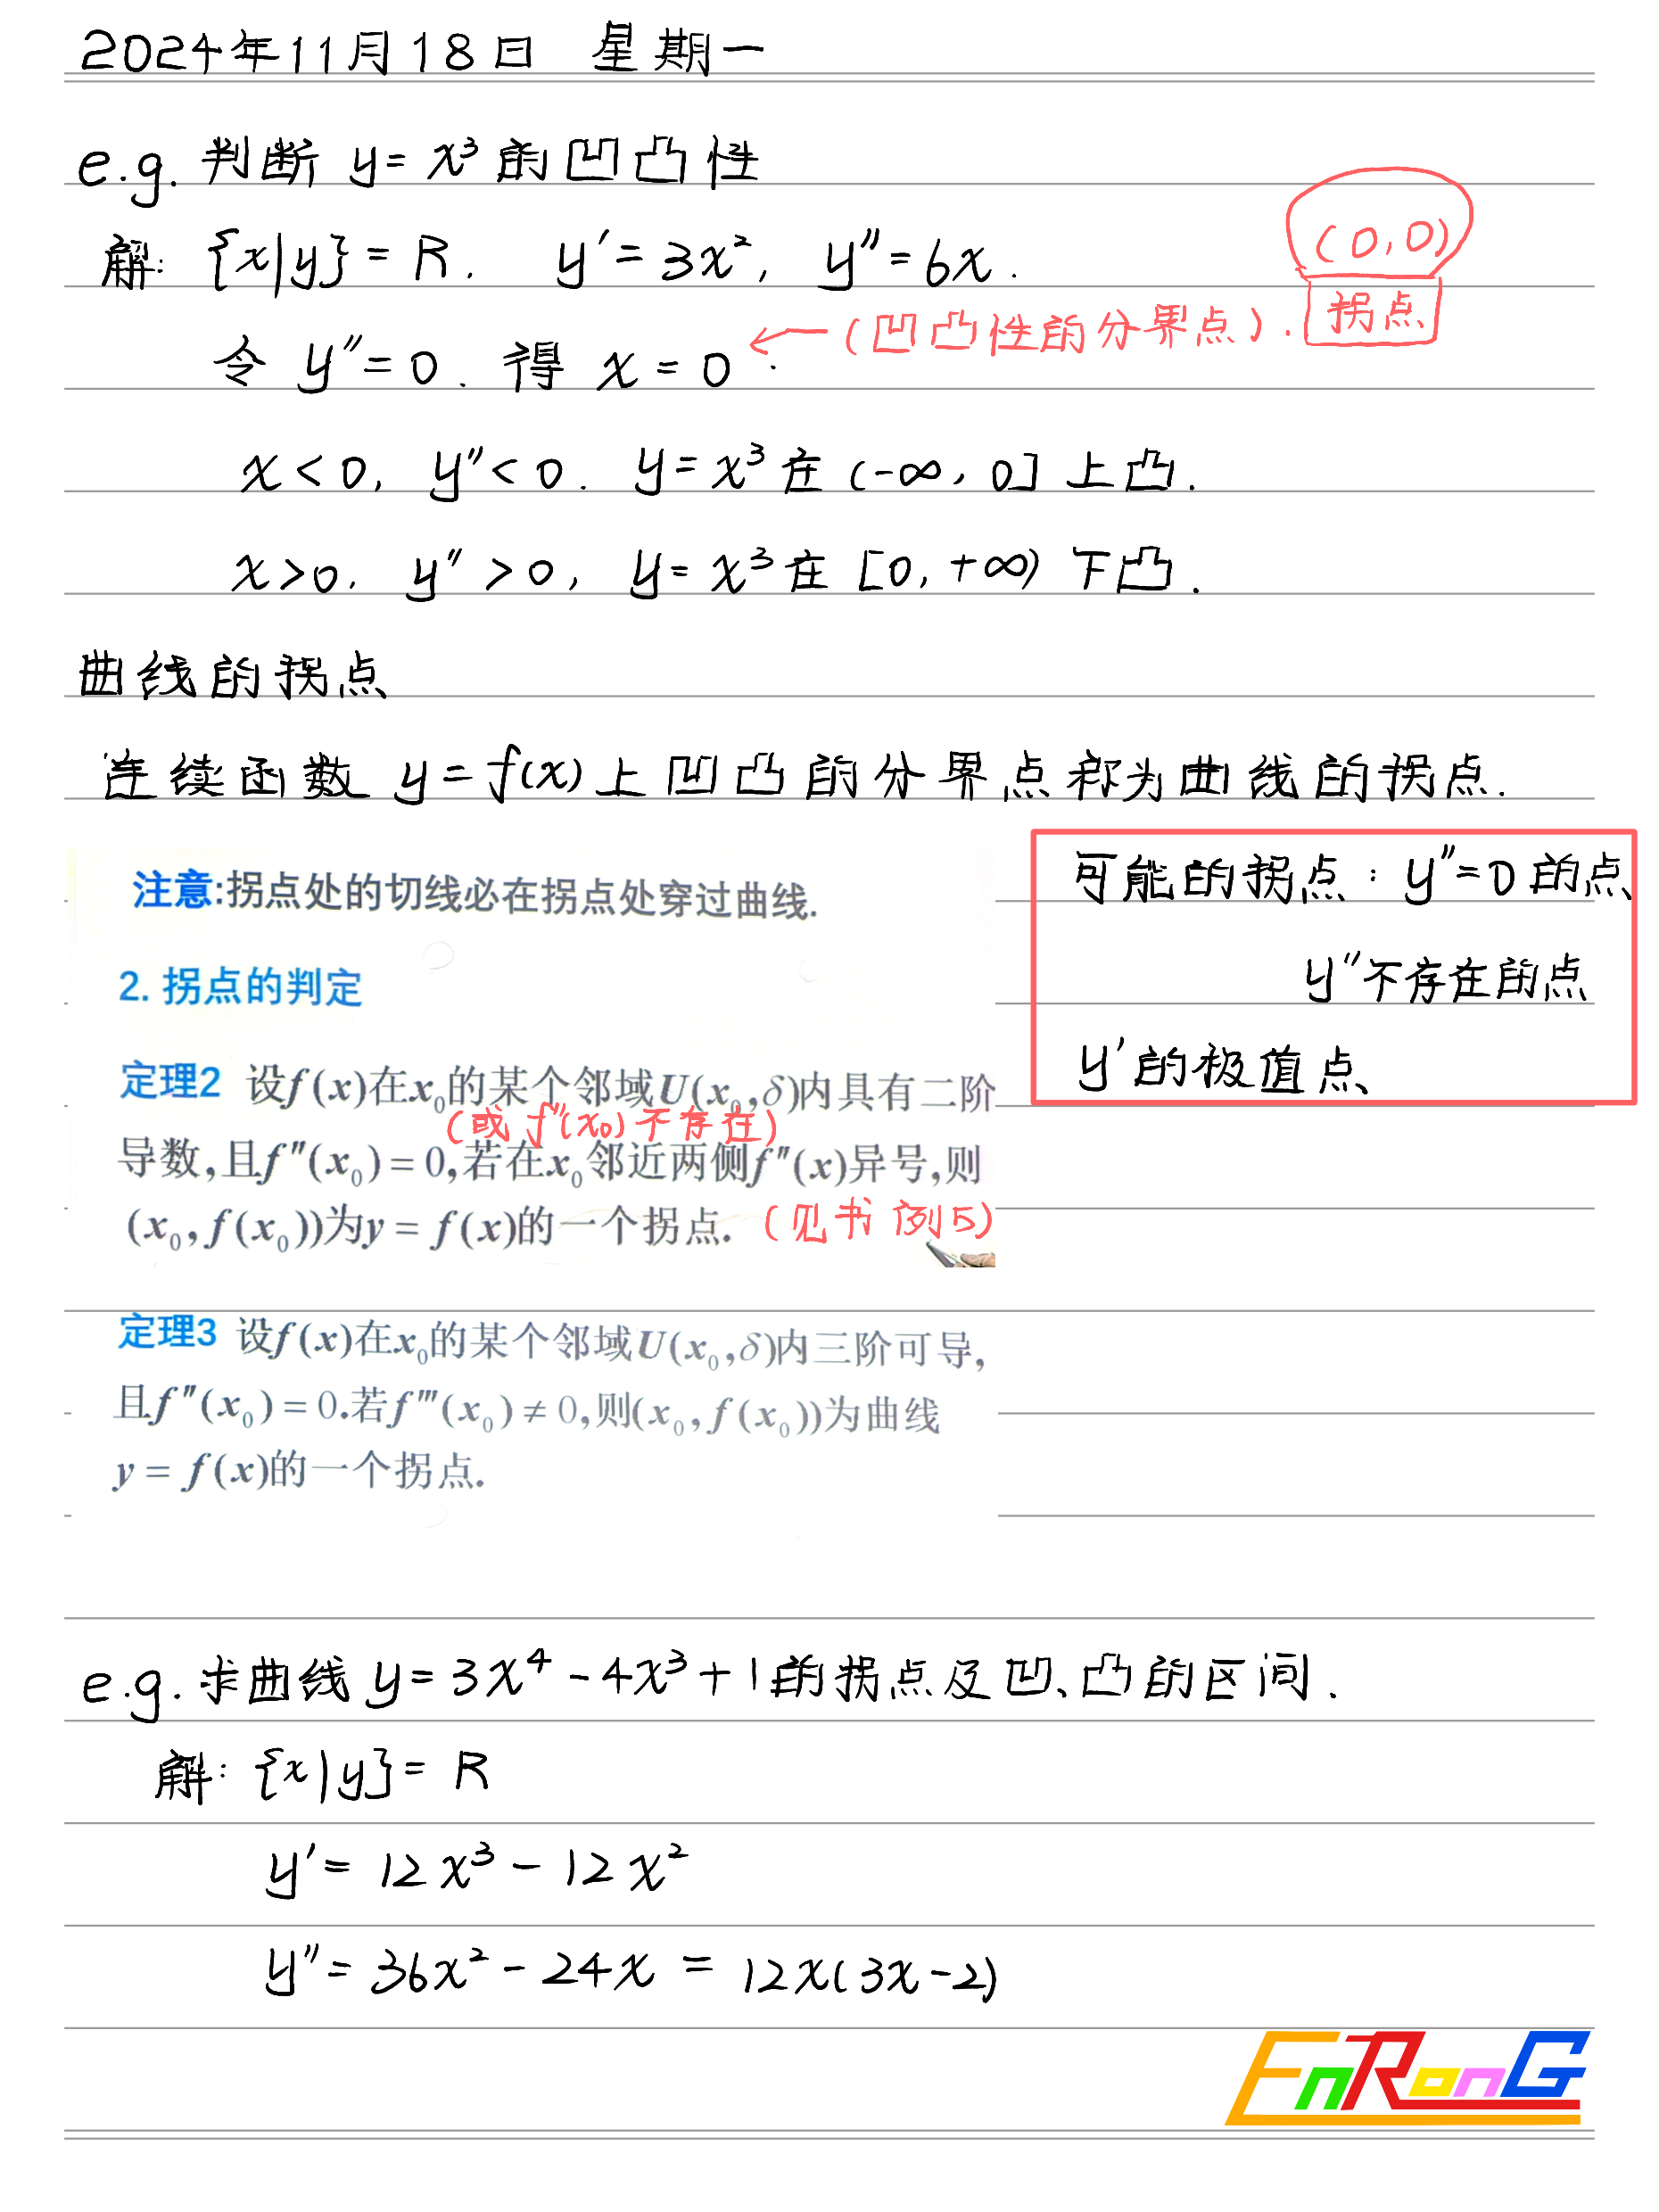 2024年11月18日 星期一
e.g. 判断 y = x³ 的凹凸性
解: {x|y} = R. y′ = 3x², y″ = 6x.
(0,0)
拐点
令 y″ = 0. 得 x = 0. ← (凹凸性的分界点).
x < 0, y″ < 0. y = x³ 在 (-∞, 0] 上凸.
x > 0, y″ > 0, y = x³ 在 [0, +∞) 下凸.
曲线的拐点
连续函数 y = f(x) 上凹凸的分界点称为曲线的拐点.
注意:拐点处的切线必在拐点处穿过曲线.
可能的拐点: y″ = 0 的点
y″不存在的点
y′的极值点
2. 拐点的判定
定理2 设f(x)在x₀的某个邻域U(x₀,δ)内具有二阶
(或 f″(x₀) 不存在)
导数,且f″(x₀) = 0,若在x₀邻近两侧f″(x)异号,则
(x₀, f(x₀))为y = f(x)的一个拐点. (见书 例5)
定理3 设f(x)在x₀的某个邻域U(x₀,δ)内三阶可导,
且f″(x₀) = 0.若f‴(x₀) ≠ 0,则(x₀, f(x₀))为曲线
y = f(x)的一个拐点.
e.g. 求曲线 y = 3x⁴ - 4x³ + 1 的拐点及凹、凸的区间.
解: {x|y} = R
y′ = 12x³ - 12x²
y″ = 36x² - 24x = 12x(3x-2)
EnRonG